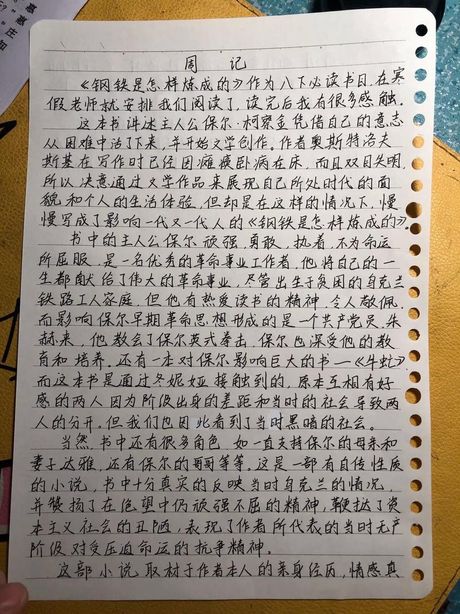 周记
《钢铁是怎样炼成的》作为八下必读书目,在寒
假,老师就安排我们阅读了,读完后我有很多感触。
这本书讲述主人公保尔·柯察金凭借自己的意志
从困难中活了下来,并开始文学创作。作者奥斯特洛夫
斯基在写作时已经因瘫痪卧病在床,而且双目失明,
所以决意通过文学作品来展现自己所处时代的面
貌和个人的生活体验,但却是在这样的情况下,慢
慢写成了影响一代又一代人的《钢铁是怎样炼成的》。
书中的主人公保尔顽强,勇敢,执着,不为命运
所屈服,是一名优秀的革命事业工作者,他将自己的一
生都献给了伟大的革命事业,尽管出生于贫困的乌克兰
铁路工人家庭,但他有热爱读书的精神,令人敬佩。
而影响保尔早期革命思想形成的是一个共产党员,朱
赫来,他教会了保尔英式拳击,保尔也深受他的教
育和培养。还有一本对保尔影响巨大的书—《牛虻》
而这本书是通过冬妮娅接触到的,原本互相有好
感的两人因为阶级出身的差距和当时的社会导致两
人的分开。但我们也因此看到了当时黑暗的社会。
当然,书中还有很多角色,如一直支持保尔的母亲和
妻子达雅,还有保尔的哥哥等等。这是一部有自传性质
的小说,书中十分真实的反映当时乌克兰的情况,
并赞扬了在绝望中仍顽强不屈的精神,鞭挞了资
本主义社会的丑陋,表现了作者所代表的当时无产
阶级对受压迫命运的抗争精神。
这部小说取材于作者本人的亲身经历,情感真